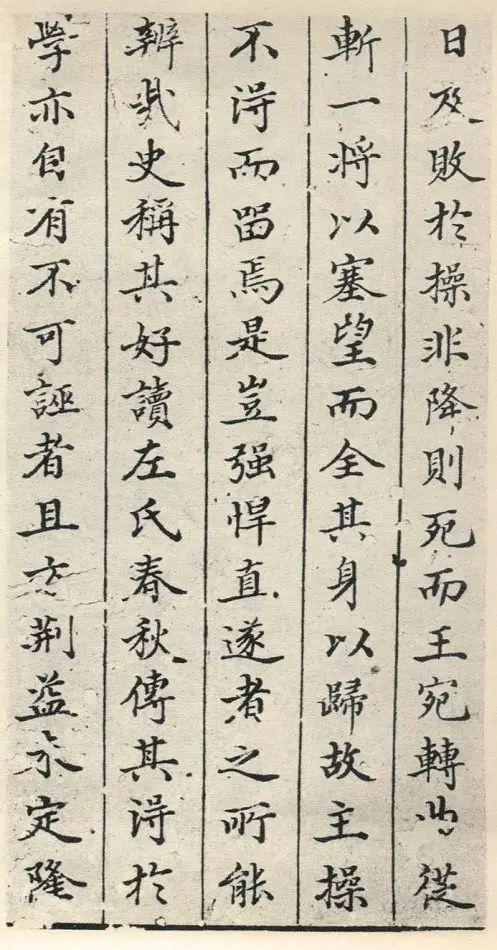 日及敗於操非降則死而王宛轉少從
斬一将以塞望而全其身以歸故主操
不得而留焉是豈强悍直遂者之所能
辨哉史稱其好讀左氏春秋傳其得於
学亦自有不可誣者且方荆益未定隆